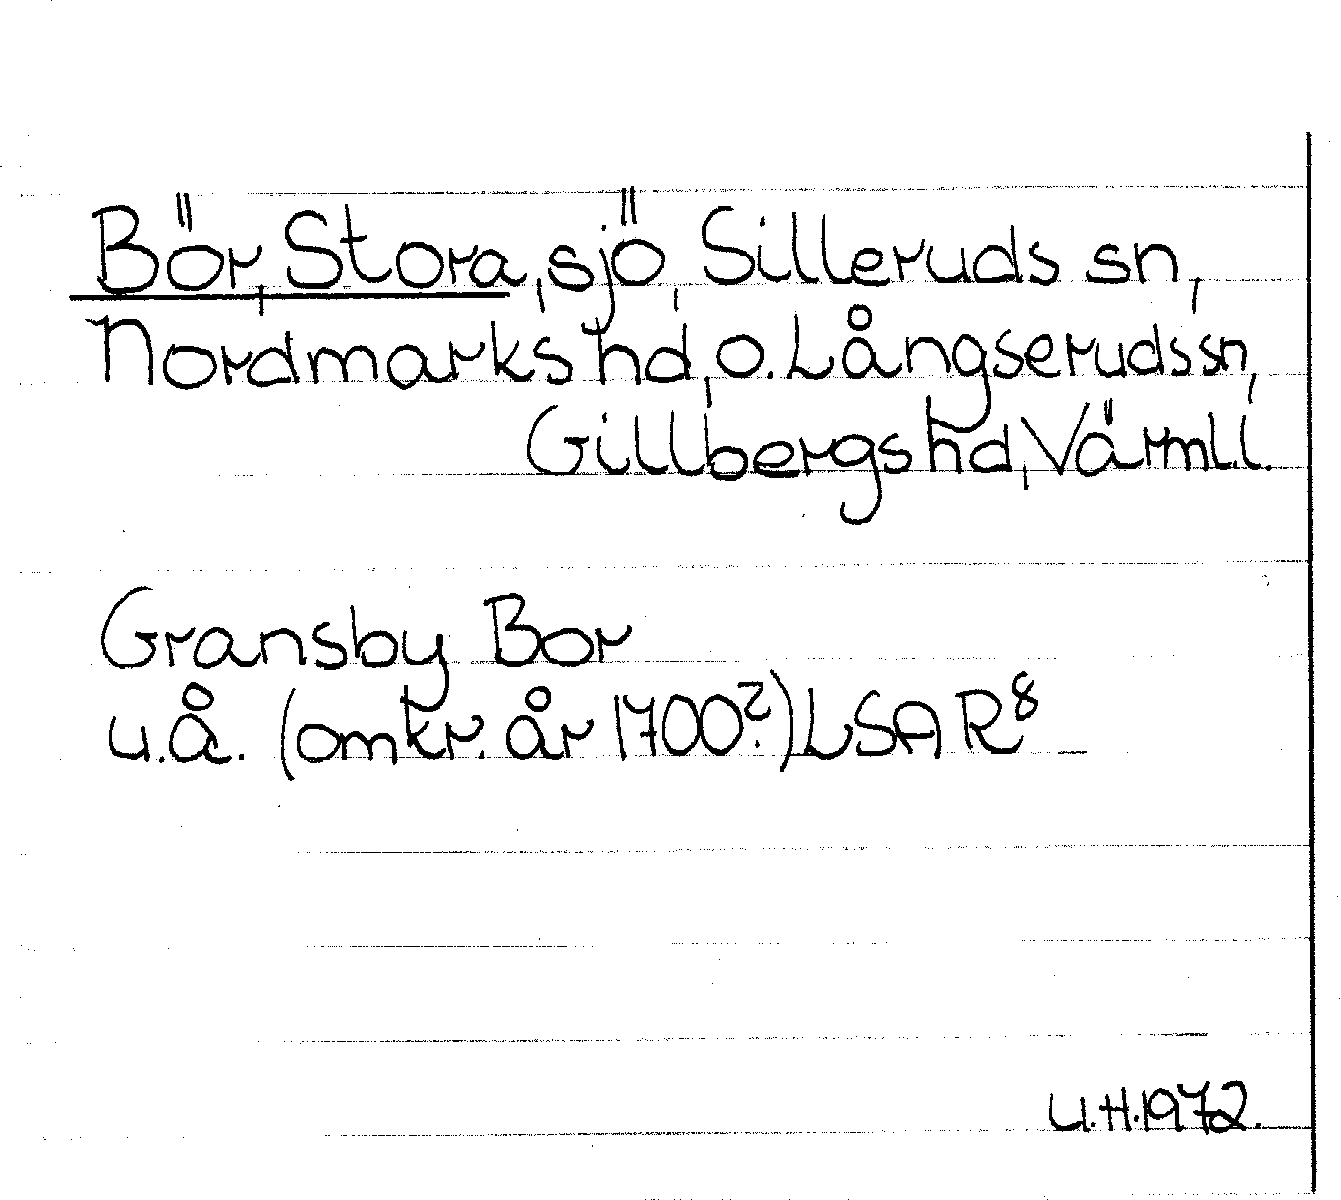 Bör, Stora, sjö, Silleruds sn,
Nordmarks hd, o. Långseruds sn,
Gillbergs hd, Värml.l.
Gransby Bor
u.å. (omkr. år 1700?) LSA R8
U.H. 1972.